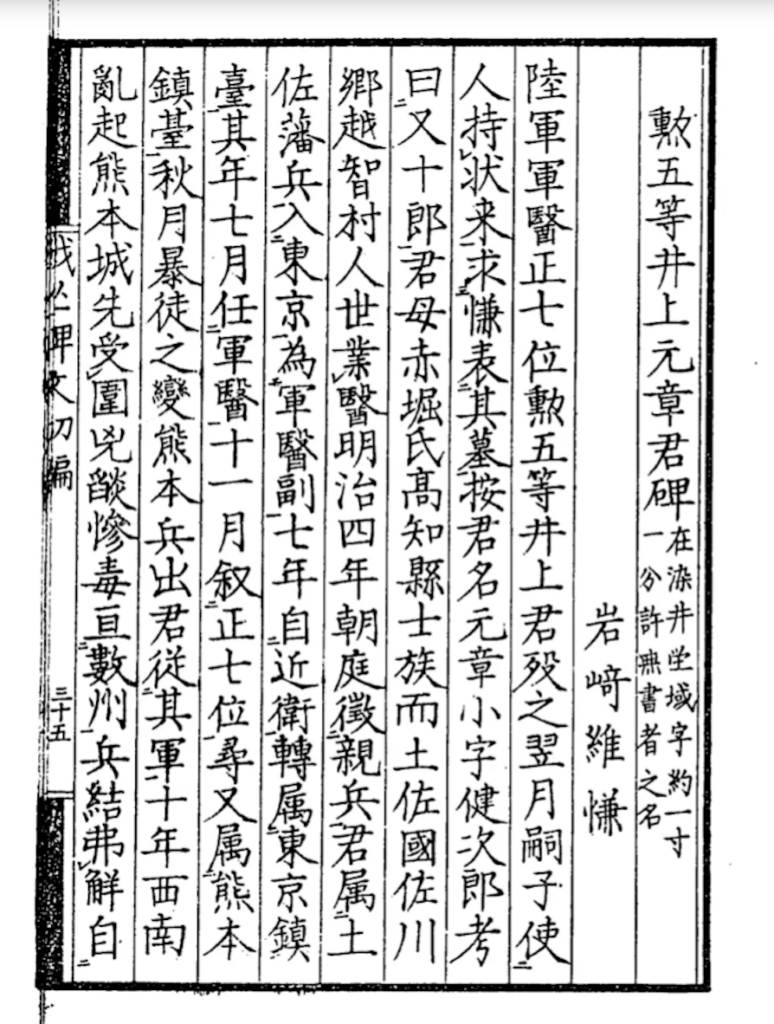 勲五等井上元章君碑 在染井塋域字約一寸
一分許無書者之名
岩﨑維慊
陸軍軍醫正七位勲五等井上君歿之翌月嗣子使二
人持状来求二慊表二其墓一按君名元章小字健次郎考
曰二又十郎一君母赤堀氏高知縣士族而土佐國佐川
郷越智村人世業レ醫明治四年朝庭徴二親兵一君属二土
佐藩兵一入二東京一為二軍醫副一七年自二近衛一轉属二東京鎮
臺一其年七月任二軍醫一十一月叙二正七位一尋又属二熊本
鎮臺一秋月暴徒之變熊本兵出君従二其軍一十年西南
亂起熊本城先受レ圍兇燄慘毒亘二數州一兵結弗レ解自二
碑文初編
三十五